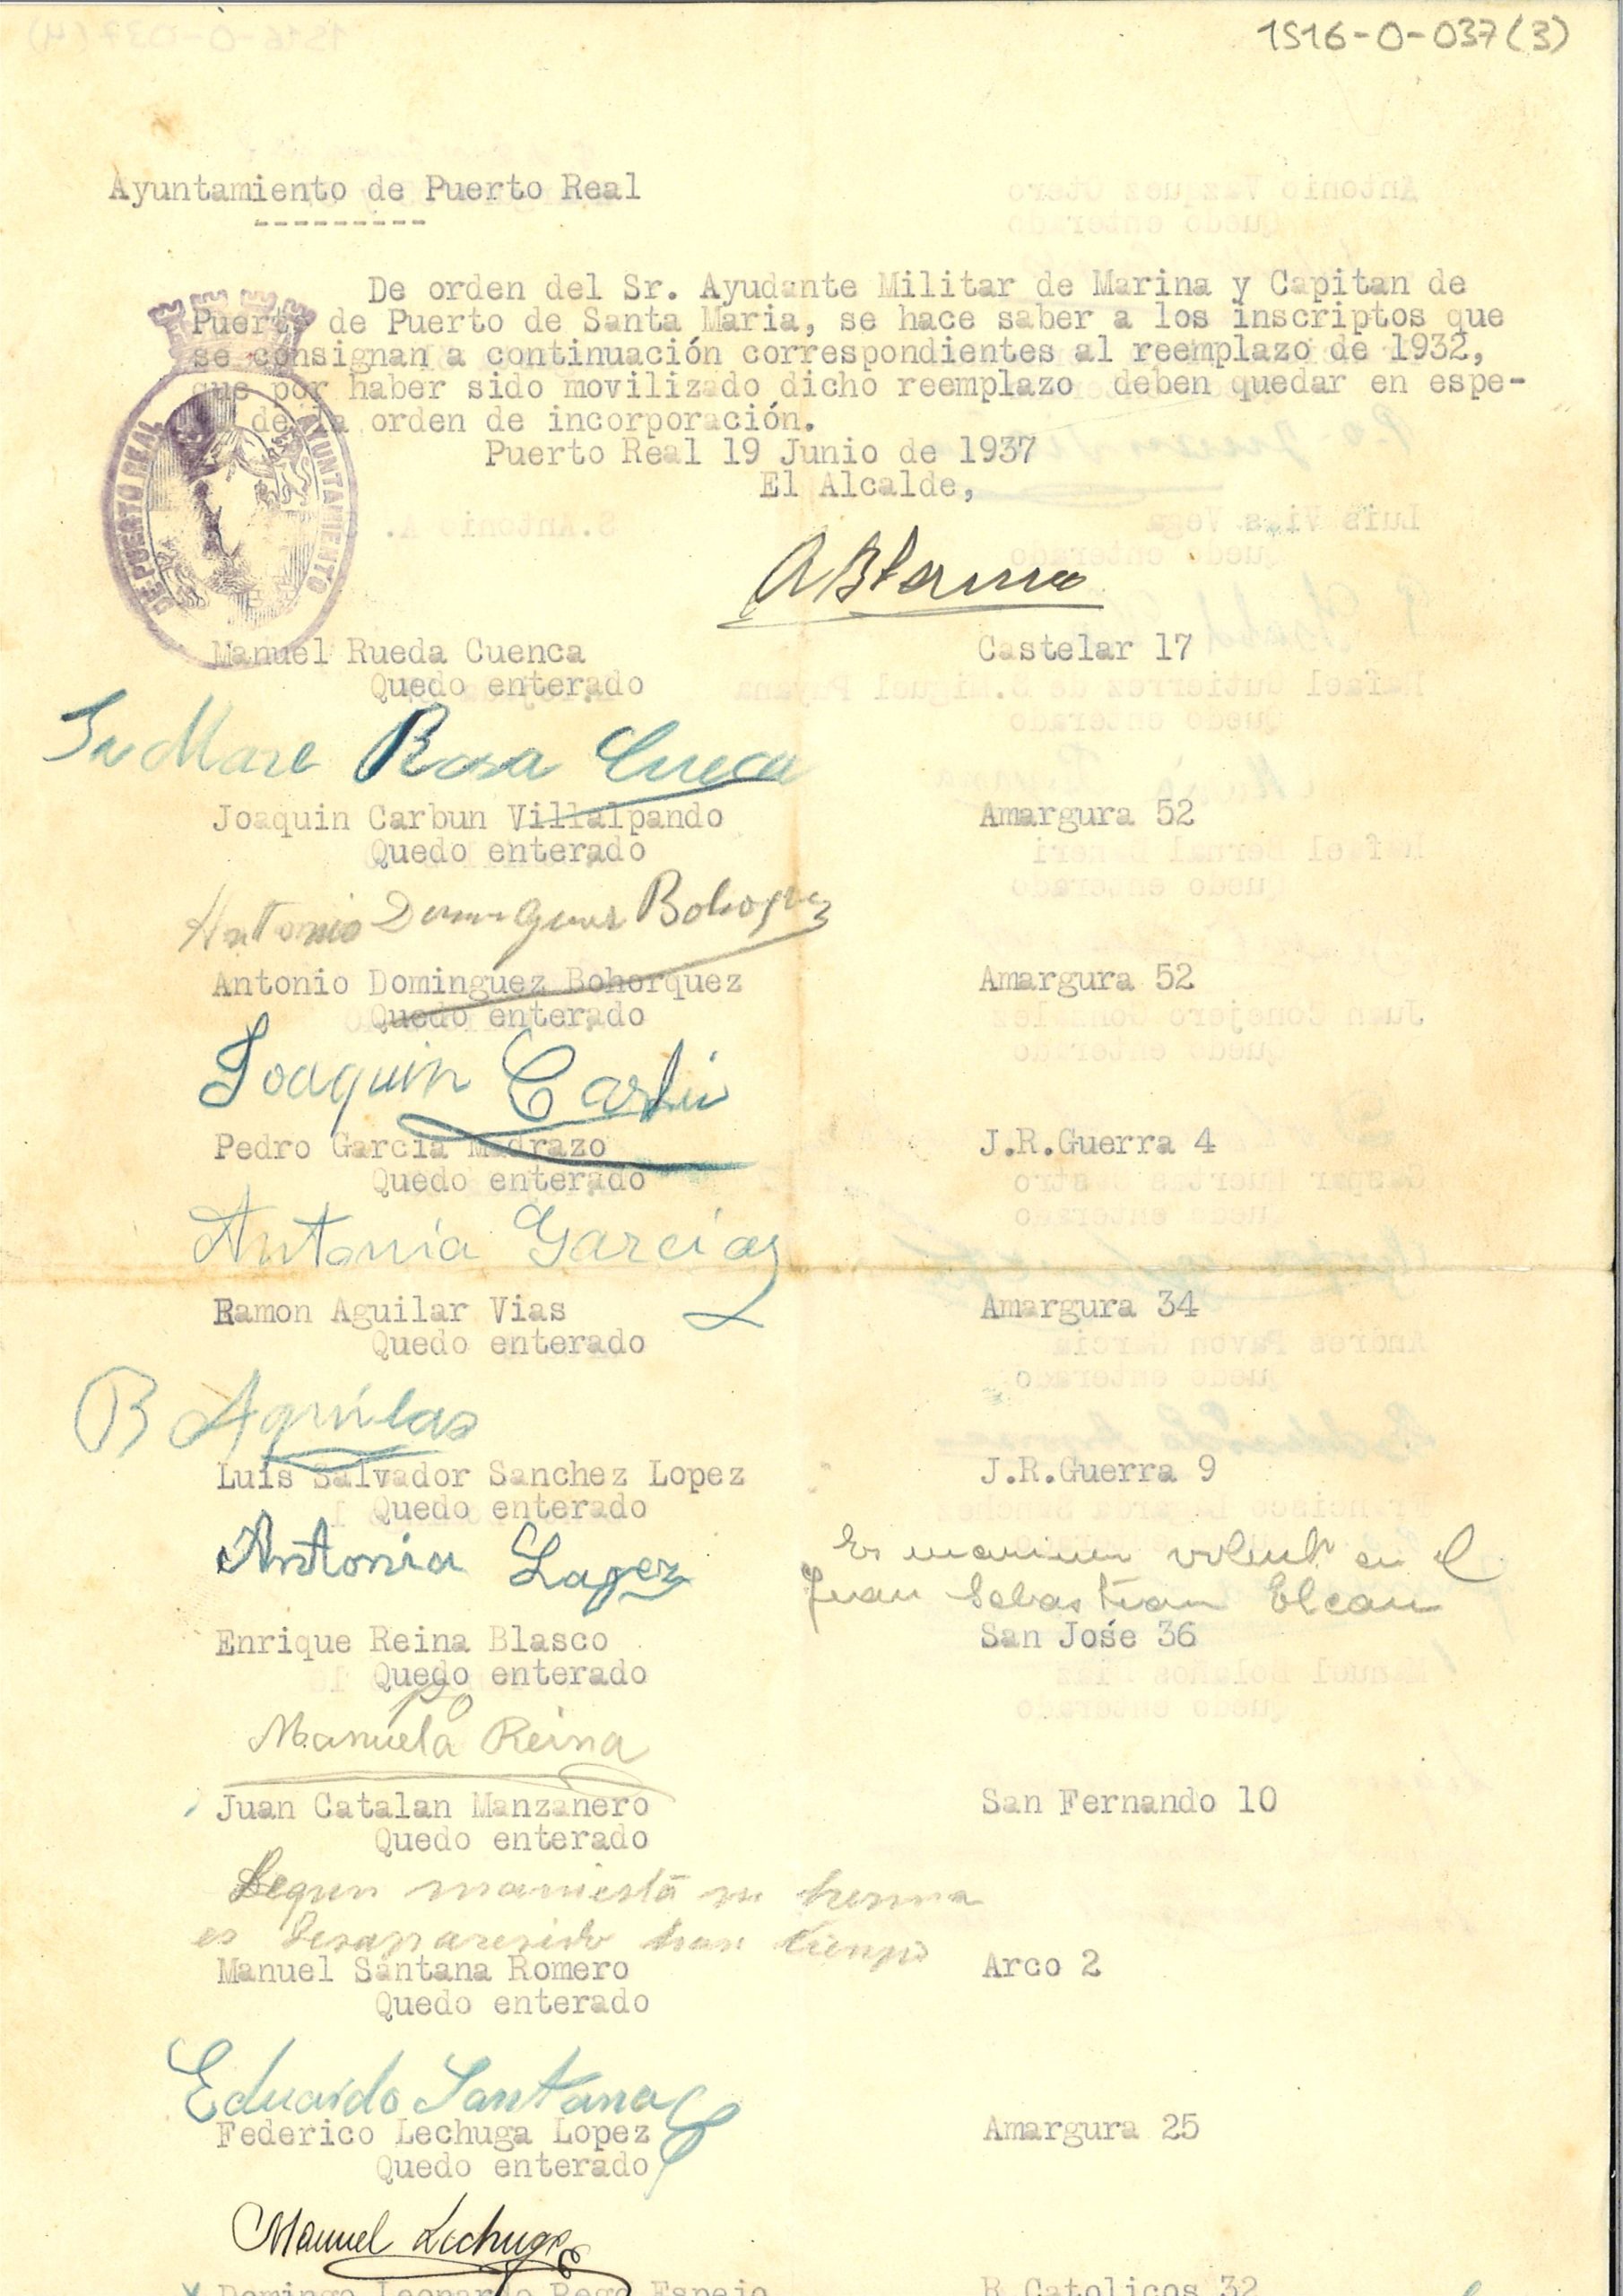 1S16-0-037(3)
Ayuntamiento de Puerto Real
De orden del Sr. Ayudante Militar de Marina y Capitan de
Puerto de Puerto de Santa Maria, se hace saber a los inscriptos que
se consignan a continuación correspondientes al reemplazo de 1932,
que por haber sido movilizado dicho reemplazo deben quedar en espe-
de la orden de incorporación.
Puerto Real 19 Junio de 1937
El Alcalde,
AYUNTAMIENTO DE PUERTO REAL
Manuel Rueda Cuenca Castelar 17
Quedo enterado
Su Mare Rosa Cueca
Joaquin Carbun Villalpando Amargura 52
Quedo enterado
Antonio
Antonio Dominguez Bohorquez Amargura 52
Quedo enterado
Joaquin
Pedro Garcia Madrazo J.R.Guerra 4
Quedo enterado
Antonia Garcia
Ramon Aguilar Vias Amargura 34
Quedo enterado
Luis Salvador Sanchez Lopez J.R.Guerra 9
Quedo enterado
Antonia Lopez
en el
Juan Sebastian Elcan
Enrique Reina Blasco San José 36
Quedo enterado
PO
Manuela Reina
Juan Catalan Manzanero San Fernando 10
Quedo enterado
Segun
es
Manuel Santana Romero Arco 2
Quedo enterado
Eduardo Santana
Federico Lechuga Lopez Amargura 25
Quedo enterado
Manuel Lechuga
Domingo Leonardo Rego Espejo R.Catolicos 32